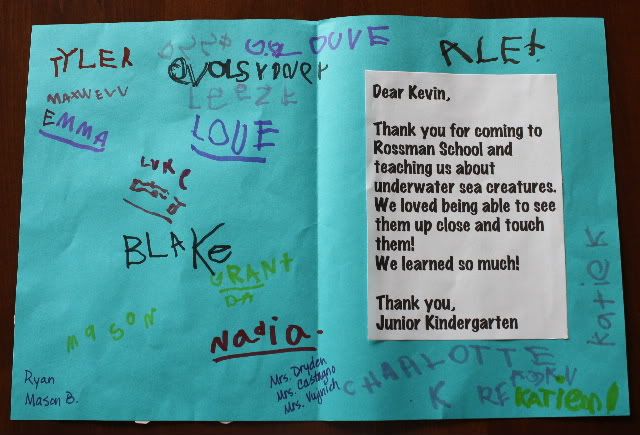 TYLER
MAXWEVV
EMMA
LOUE
LUKE
BLAKE
GRANt
DA
mason
Nadia.
Ryan
Mason B.
Mrs. Dryden
Mrs. Castagno
Mrs. Vujnich
ALEt
Dear Kevin,
Thank you for coming to
Rossman School and
teaching us about
underwater sea creatures.
We loved being able to see
them up close and touch
them!
We learned so much!
Thank you,
Junior Kindergarten
KatieK
CHARLOTTE
K
KATiem